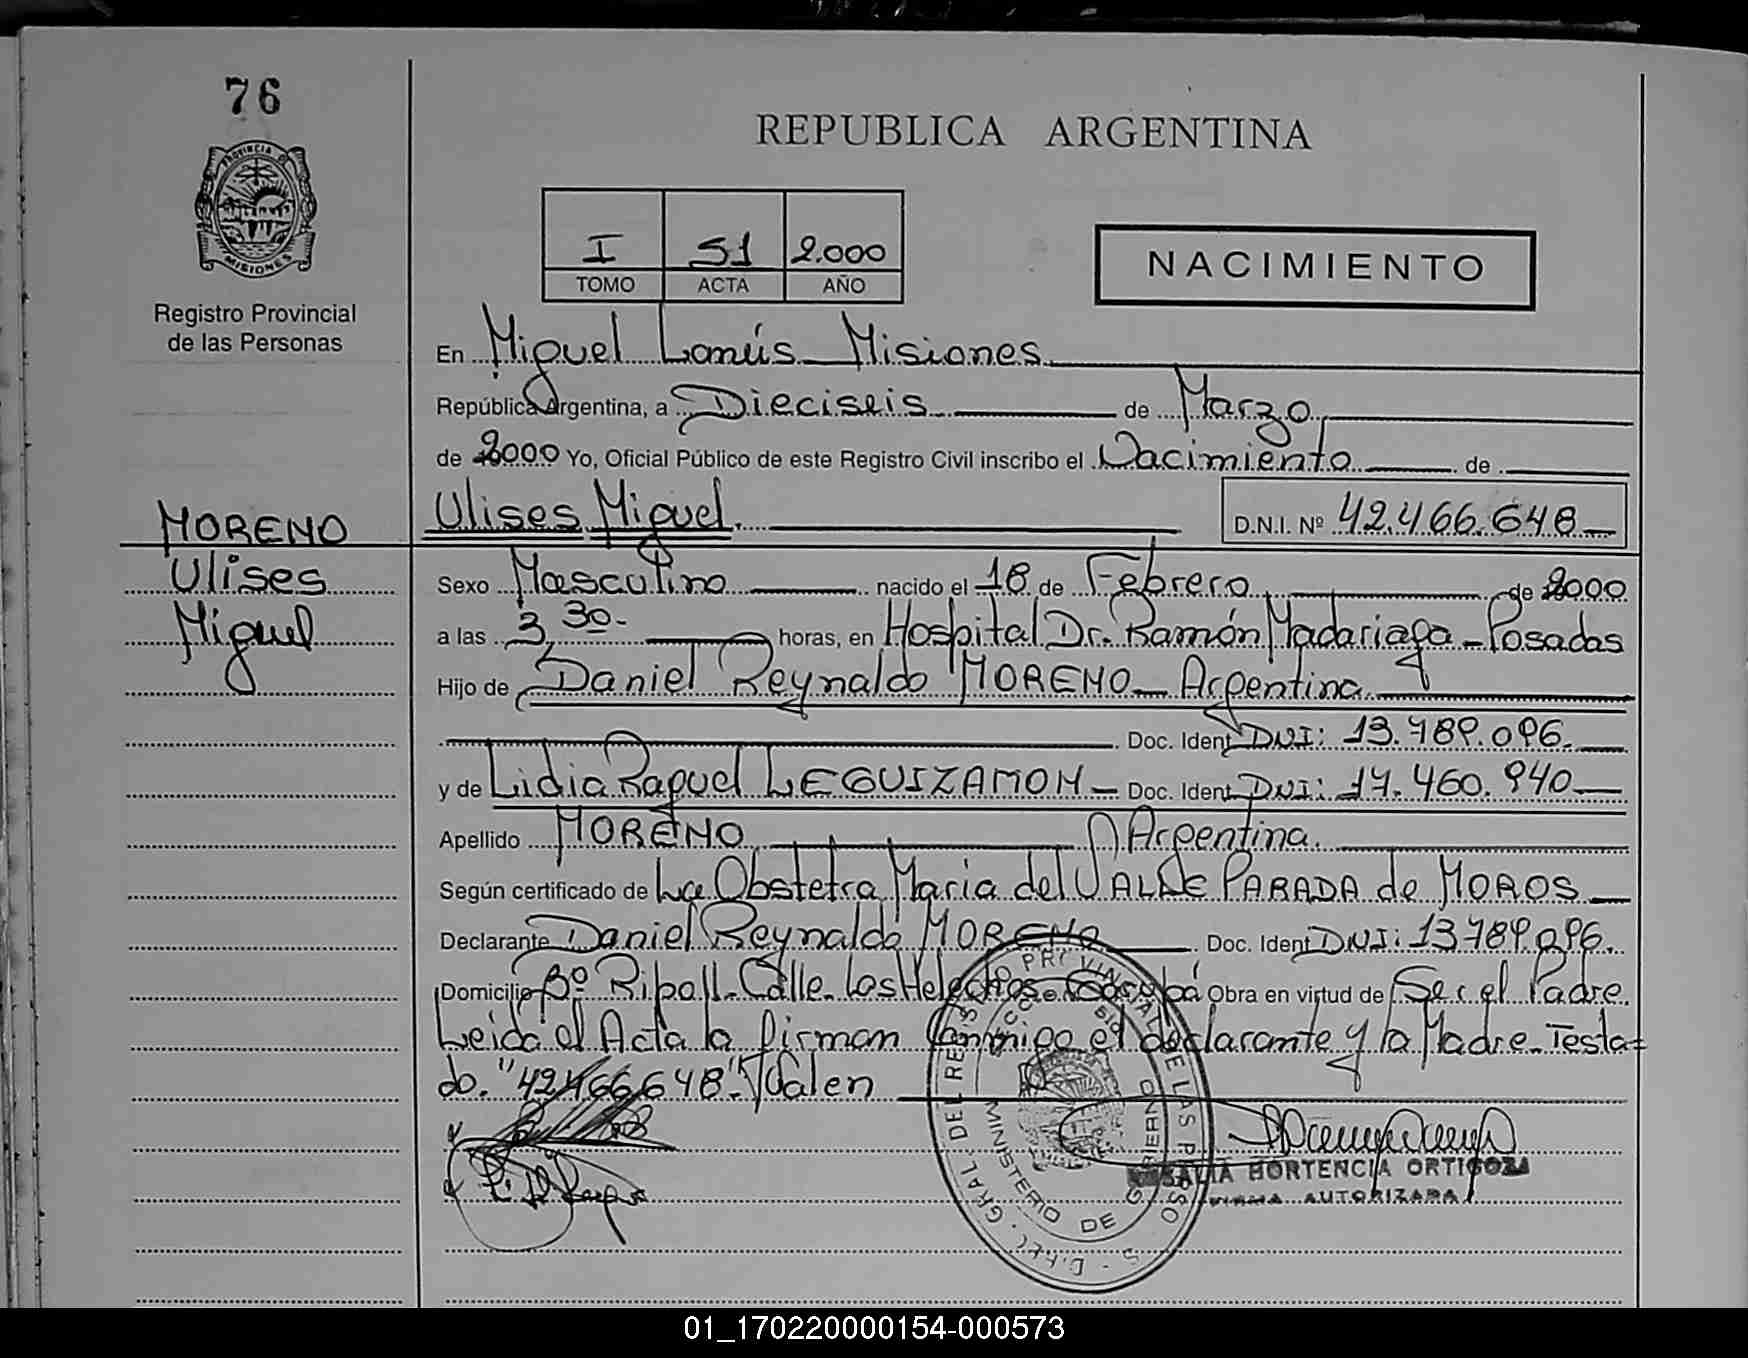 76
REPUBLICA ARGENTINA
PROVINCIA DE
MISIONES
Registro Provincial
de las Personas
I 51 2.000
TOMO ACTA AÑO
NACIMIENTO
En Miguel Lanús Misiones
República Argentina, a Dieciseis de Marzo
de 2000 Yo, Oficial Público de este Registro Civil inscribo el Nacimiento de
Ulises Miguel. D.N.I. Nº 42.466.648
MORENO
Ulises
Miguel
Sexo Masculino nacido el 18 de Febrero de 2000
a las 3,30- horas, en Hospital Dr. Ramón Madariaga - Posadas
Hijo de Daniel Reynaldo MORENO - Argentina
Doc. Ident DNI: 13.789.096.
y de Lidia Raquel LEGUIZAMON - Doc. Ident DNI: 17.460.940
Apellido MORENO Argentina.
Según certificado de La Obstetra Maria del VALLE PARADA de MOROS
Declarante Daniel Reynaldo MORENO Doc. Ident DNI: 13789096.
Domicilio Bº Ripoll - Calle Los Helechos - Obra en virtud de Ser el Padre.
Leida el Acta la firman conmigo el declarante y la Madre - Testa=
do. "42466648". Valen
HORTENCIA ORTIGOZA
FIRMA AUTORIZADA
DIREC. GRAL. DEL REGISTRO PROVINCIAL DE LAS PERSONAS
MINISTERIO DE GOBIERNO
01_170220000154-000573